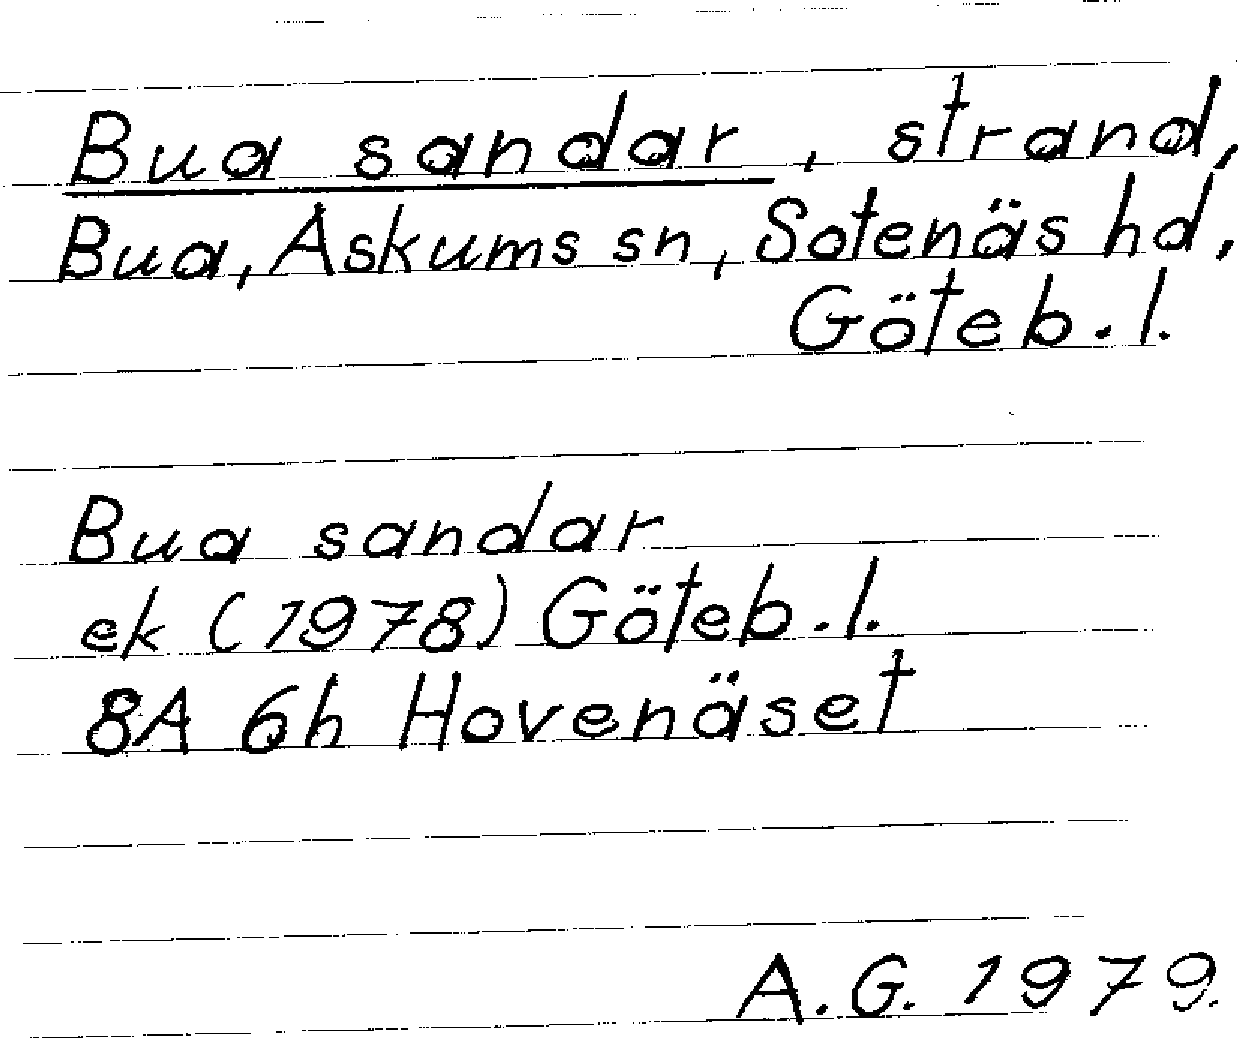 Bua sandar, strand,
Bua, Askums sn, Sotenäs hd,
Göteb. l.
Bua sandar
ek (1978) Göteb. l.
8A 6h Hovenäset
A.G. 1979.